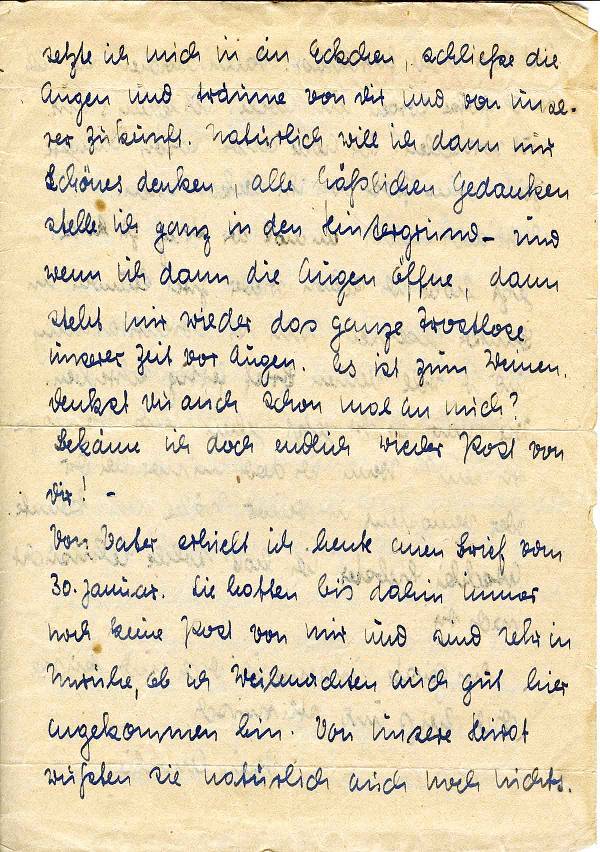 setze ich mich in ein Eckchen, schließe die
Augen und träume von Dir und von unse-
rer Zukunft. Natürlich will ich dann nur
Schönes denken, alle häßlichen Gedanken
stelle ich ganz in den Hintergrund – und
wenn ich dann die Augen öffne, dann
steht mir wieder das ganze Trostlose
unserer Zeit vor Augen. Es ist zum Weinen.
Denkst Du auch schon mal an mich?
Bekäme ich doch endlich wieder Post von
Dir! –
Von Vater erhielt ich heute einen Brief vom
30. Januar. Sie hatten bis dahin immer
noch keine Post von mir und sind sehr in
Unruhe, ob ich Weihnachten auch gut hier
angekommen bin. Von unsere Heirat
wußten sie natürlich auch noch nichts.